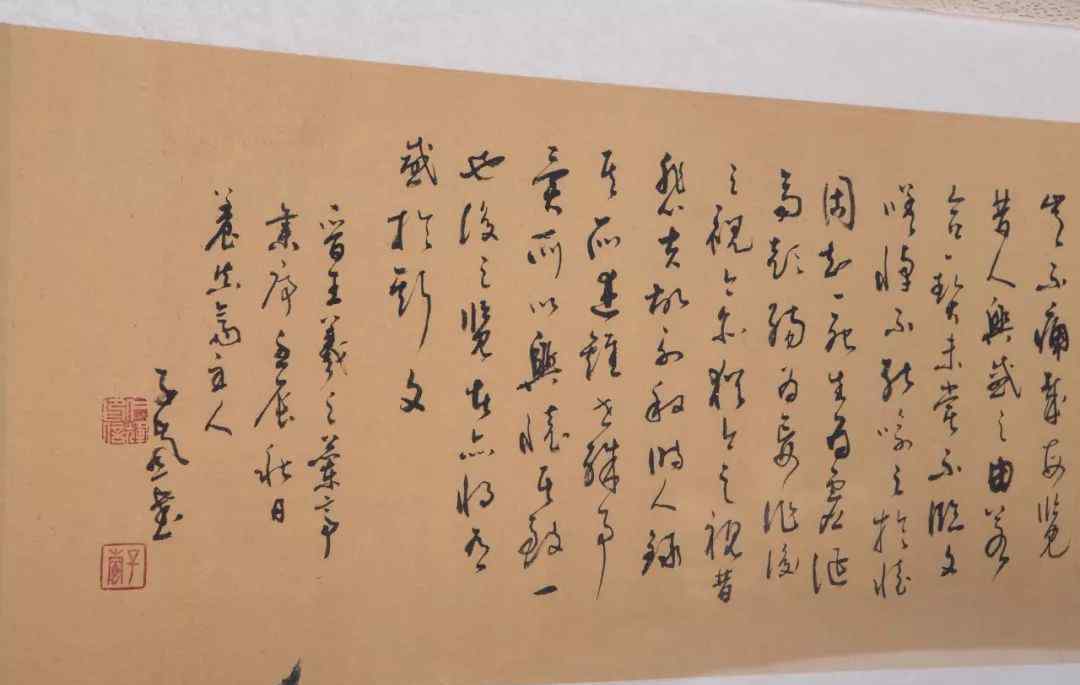 豈不痛哉每覽
昔人興感之由若
合一契未嘗不臨文
嗟悼不能喻之於懷
固知一死生為虛誕
齊彭殤為妄作後
之視今亦猶今之視昔
悲夫故列敘時人錄
其所述雖世殊事
異所以興懷其致一
也後之覽者亦將有
感於斯文
晉王羲之蘭亭
集序壬辰秋日
養真齋主人
子書